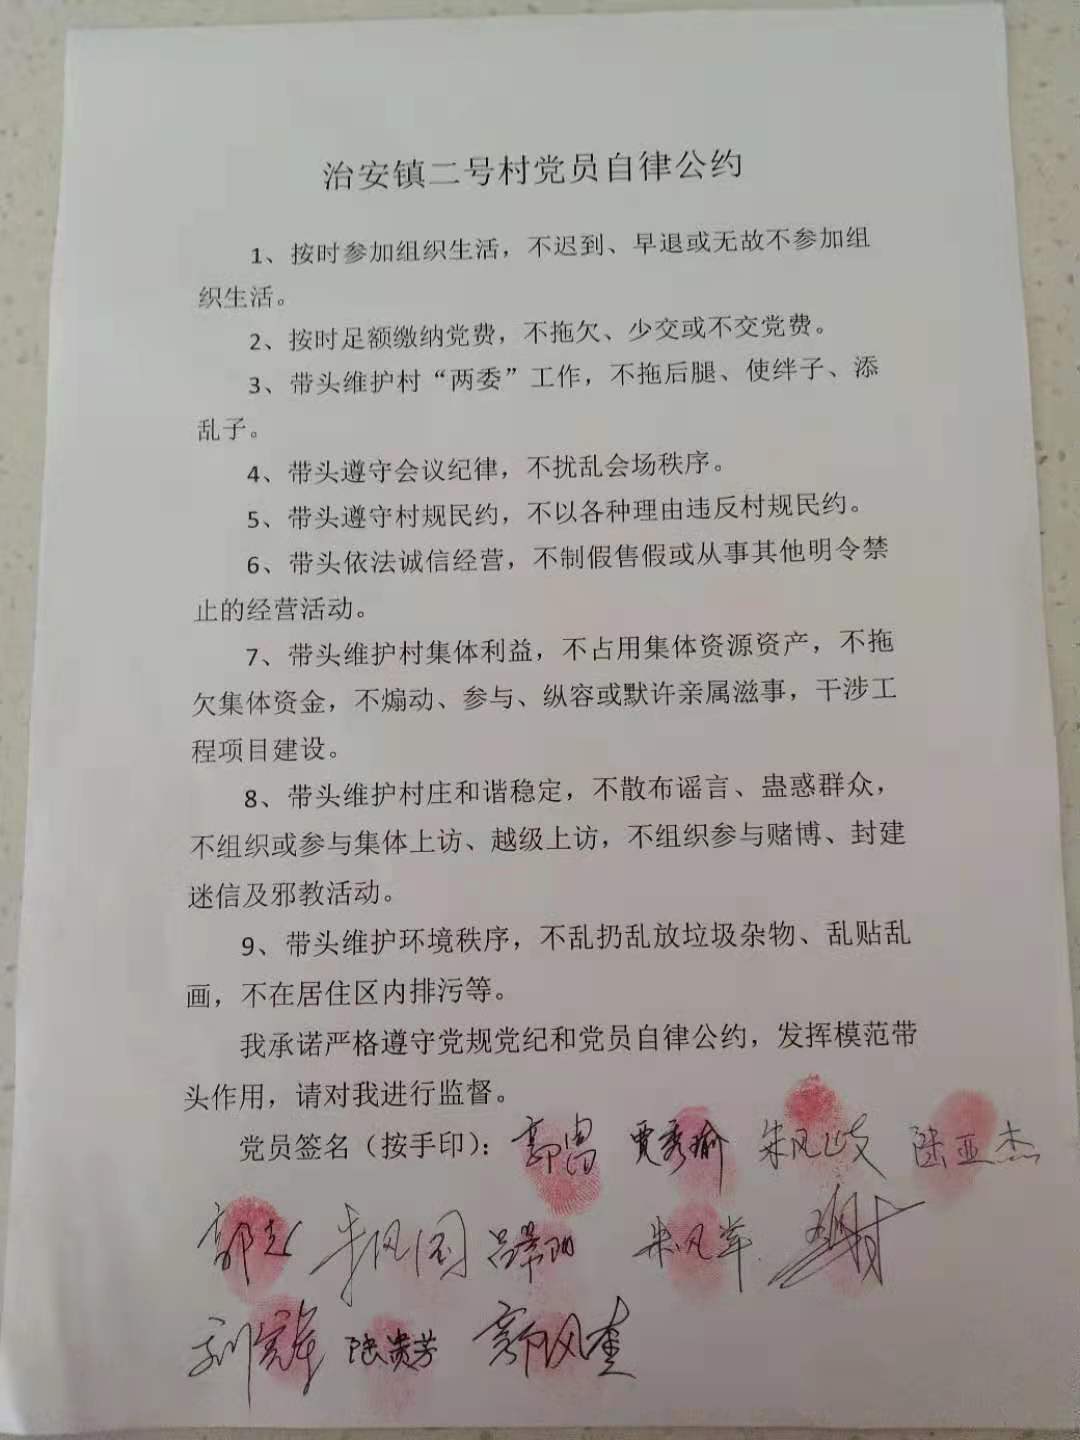 治安镇二号村党员自律公约
1、按时参加组织生活，不迟到、早退或无故不参加组
织生活。
2、按时足额缴纳党费，不拖欠、少交或不交党费。
3、带头维护村“两委”工作，不拖后腿、使绊子、添
乱子。
4、带头遵守会议纪律，不扰乱会场秩序。
5、带头遵守村规民约，不以各种理由违反村规民约。
6、带头依法诚信经营，不制假售假或从事其他明令禁
止的经营活动。
7、带头维护村集体利益，不占用集体资源资产，不拖
欠集体资金，不煽动、参与、纵容或默许亲属滋事，干涉工
程项目建设。
8、带头维护村庄和谐稳定，不散布谣言、蛊惑群众，
不组织或参与集体上访、越级上访，不组织参与赌博、封建
迷信及邪教活动。
9、带头维护环境秩序，不乱扔乱放垃圾杂物、乱贴乱
画，不在居住区内排污等。
我承诺严格遵守党规党纪和党员自律公约，发挥模范带
头作用，请对我进行监督。
党员签名（按手印）： 贾秀瑜 朱凤岐 陆亚杰
朱凤国
陆贵芳 郭凤奎